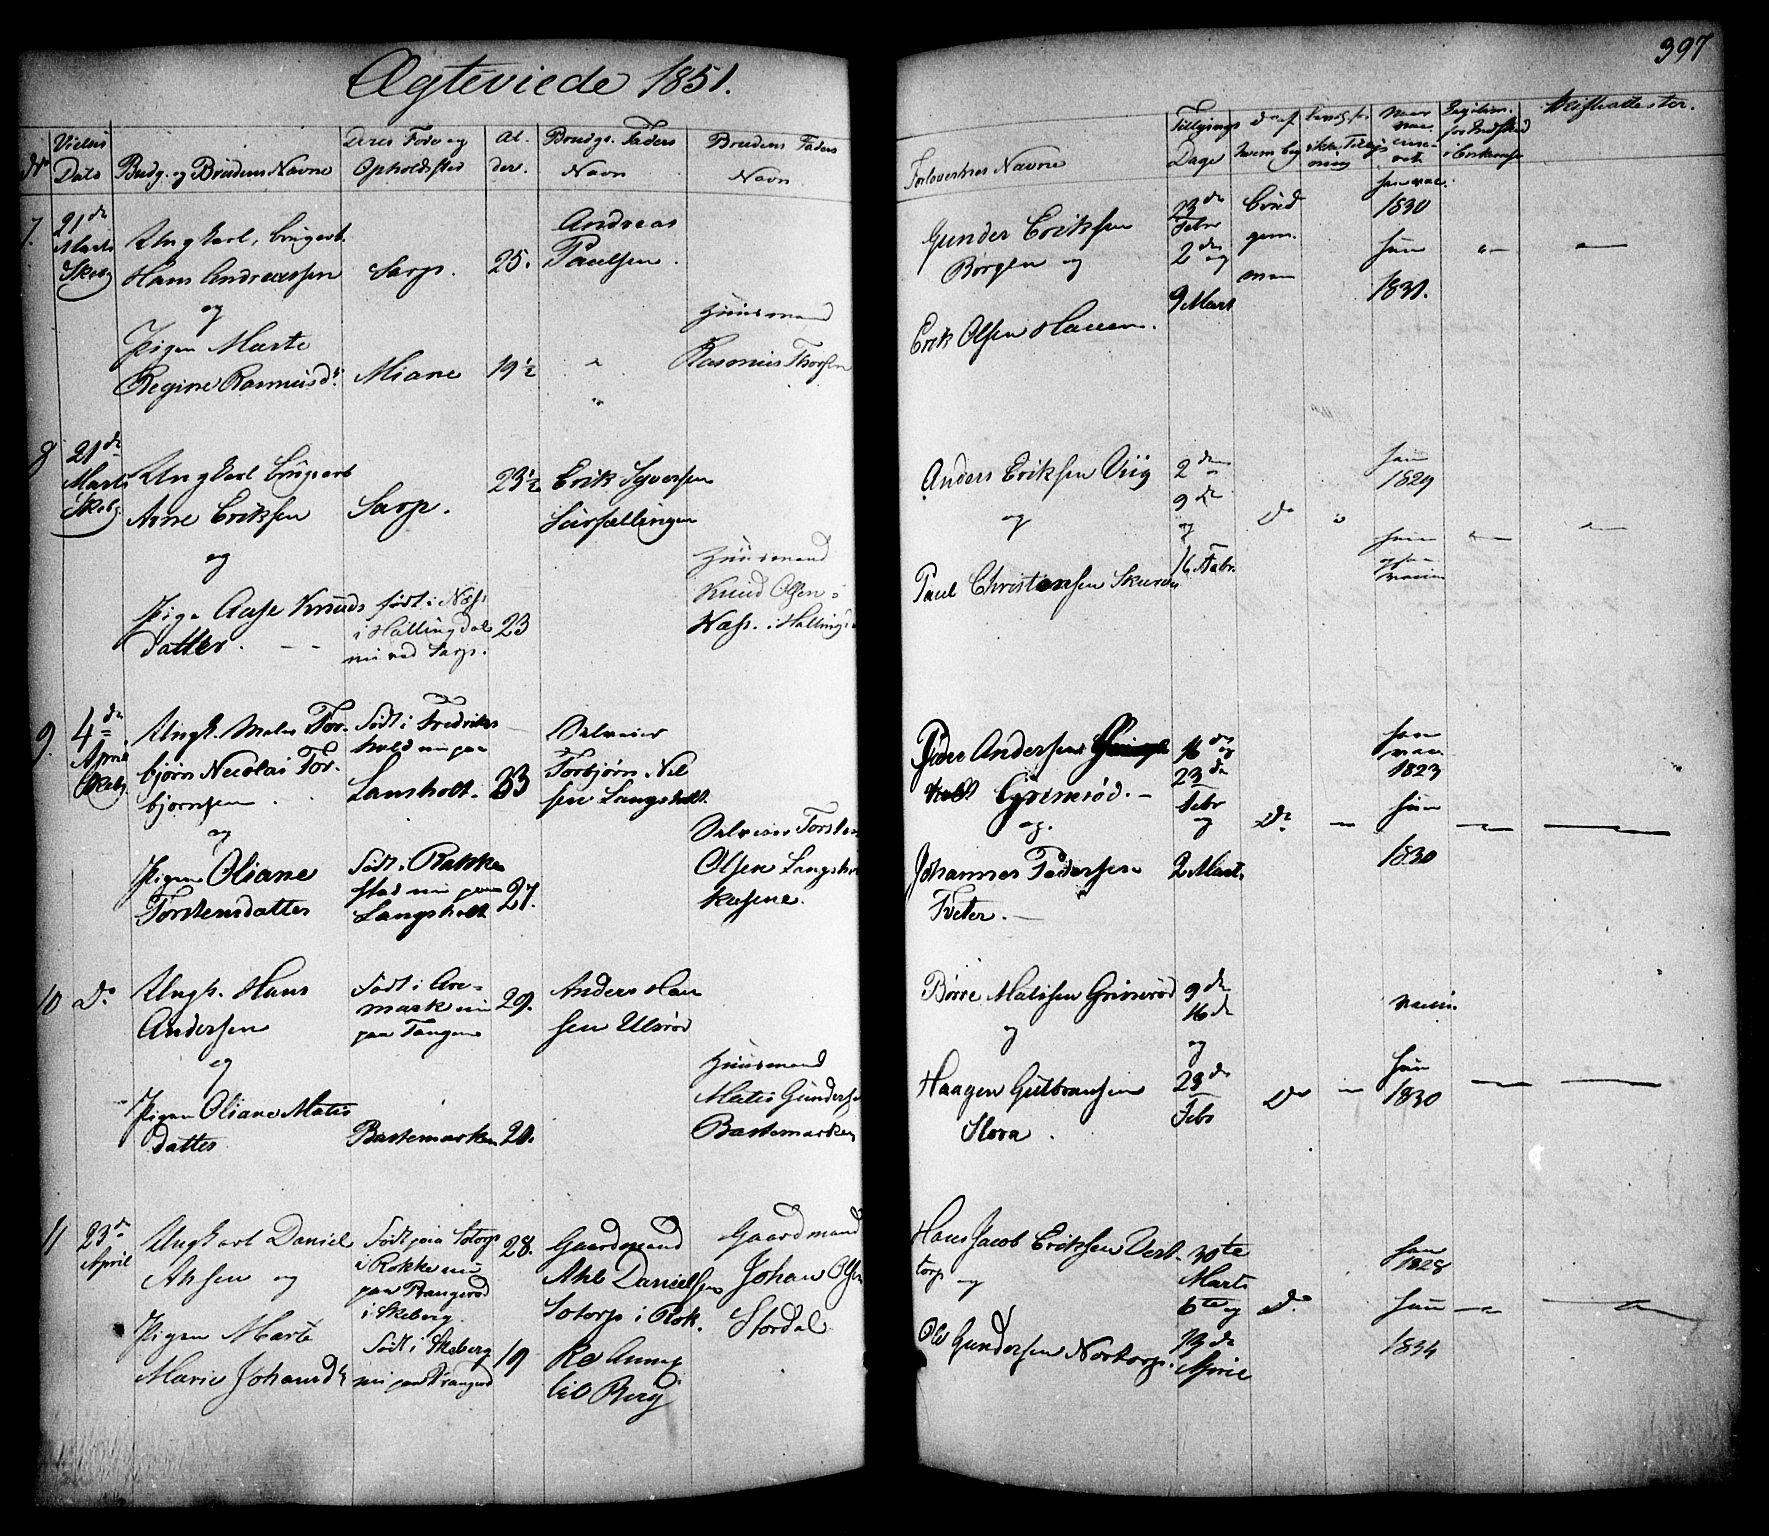 Ægteviede 1851.
397
No
Vielses Dato
Brudg. og Brudens Navne
Deres Føde og Opholdssted
Al- der.
Brudgs. Faders Navn
Brudens Faders Navn
Forlovernes Navne
Tillysnings Dage
7.
21de
Marts
Skeb
Ungkarl, Brugsarb.
Hans Andreassen
og
Pigen Marte
Regine Rasmusdr
Sarp.
Miane
25.
19½
Andreas
Paulsen.
Huusmand
Rasmus Thorsen
Gunder Eriksen
Børgen og
Erik Olsen Hauen.
23de
Febr
2den og
9 Mart
Brud
gom
men
han vac.
1830
hun
1831.
8
21de
Marts
Skeb
Ungkarl Brugsarb
Arne Eriksen
og
Pige Aase Knuds
datter.
Sarp.
født i Næs
i Hallingdal
nu ved Sarp.
23½
23
Erik Syversen
Huusmand
Knud Olsen
Næss. i Halling
Anders Eriksen Viig
og
Paul Christensen
2den
9de
og
16 Febr.
Do
han
1829
9.
4de
April
Skeb.
Ungk. Maler Tor-
bjørn Nicolai Tor-
bjørnsen.
og
Pigen Oliane
Torstensdatter
Født i Fredriks
hald nu paa
Lansholt.
Født i Rakke
stad nu paa
Langsholt
33
27.
Selveier
Torbjørn Nil
sen Langsholt.
Selveier Torsten
Olsen Langshol
Peder Andersen
Grimerød.
og.
Johannes Pedersen
Tveter.
16de og
23de
Febr
og
2 Mart.
Do
han
vacc
1823
hun
1830
10
Do
Ungk. Hans
Andersen
og
Pigen Oliane Matis
datter
Født i Are-
mark nu
paa Tangen
Bastemarken
29.
20.
Anders Han
sen Ulsrød
Huusmand
Matis Gundersen
Bastemarken
Børre Matisen Grimerød
og
Haagen Gulbransen
9de
16de
og
23de
Febr
Do
vaccin.
hun
1830
11
23de
April
Ungkarl Daniel
Ahsen og
Pigen Marte
Marie Johansdr
Født paa Sotorp
i Rokke nu
paa Prangerød
i Skeberg.
Født i Skeberg
nu paa Prangerød
28.
19
Gaardmand
Ahl Danielsen
Sotorp i Rok.
ke Annex
til Berg
Gaardmand
Johan Olsen
Stordal
Hans Jacob Eriksen Vest-
torp og
Ole Gundersen Nortorp.
30te
Marts
6te og
13de
April
Do
han
1828
hun
1834